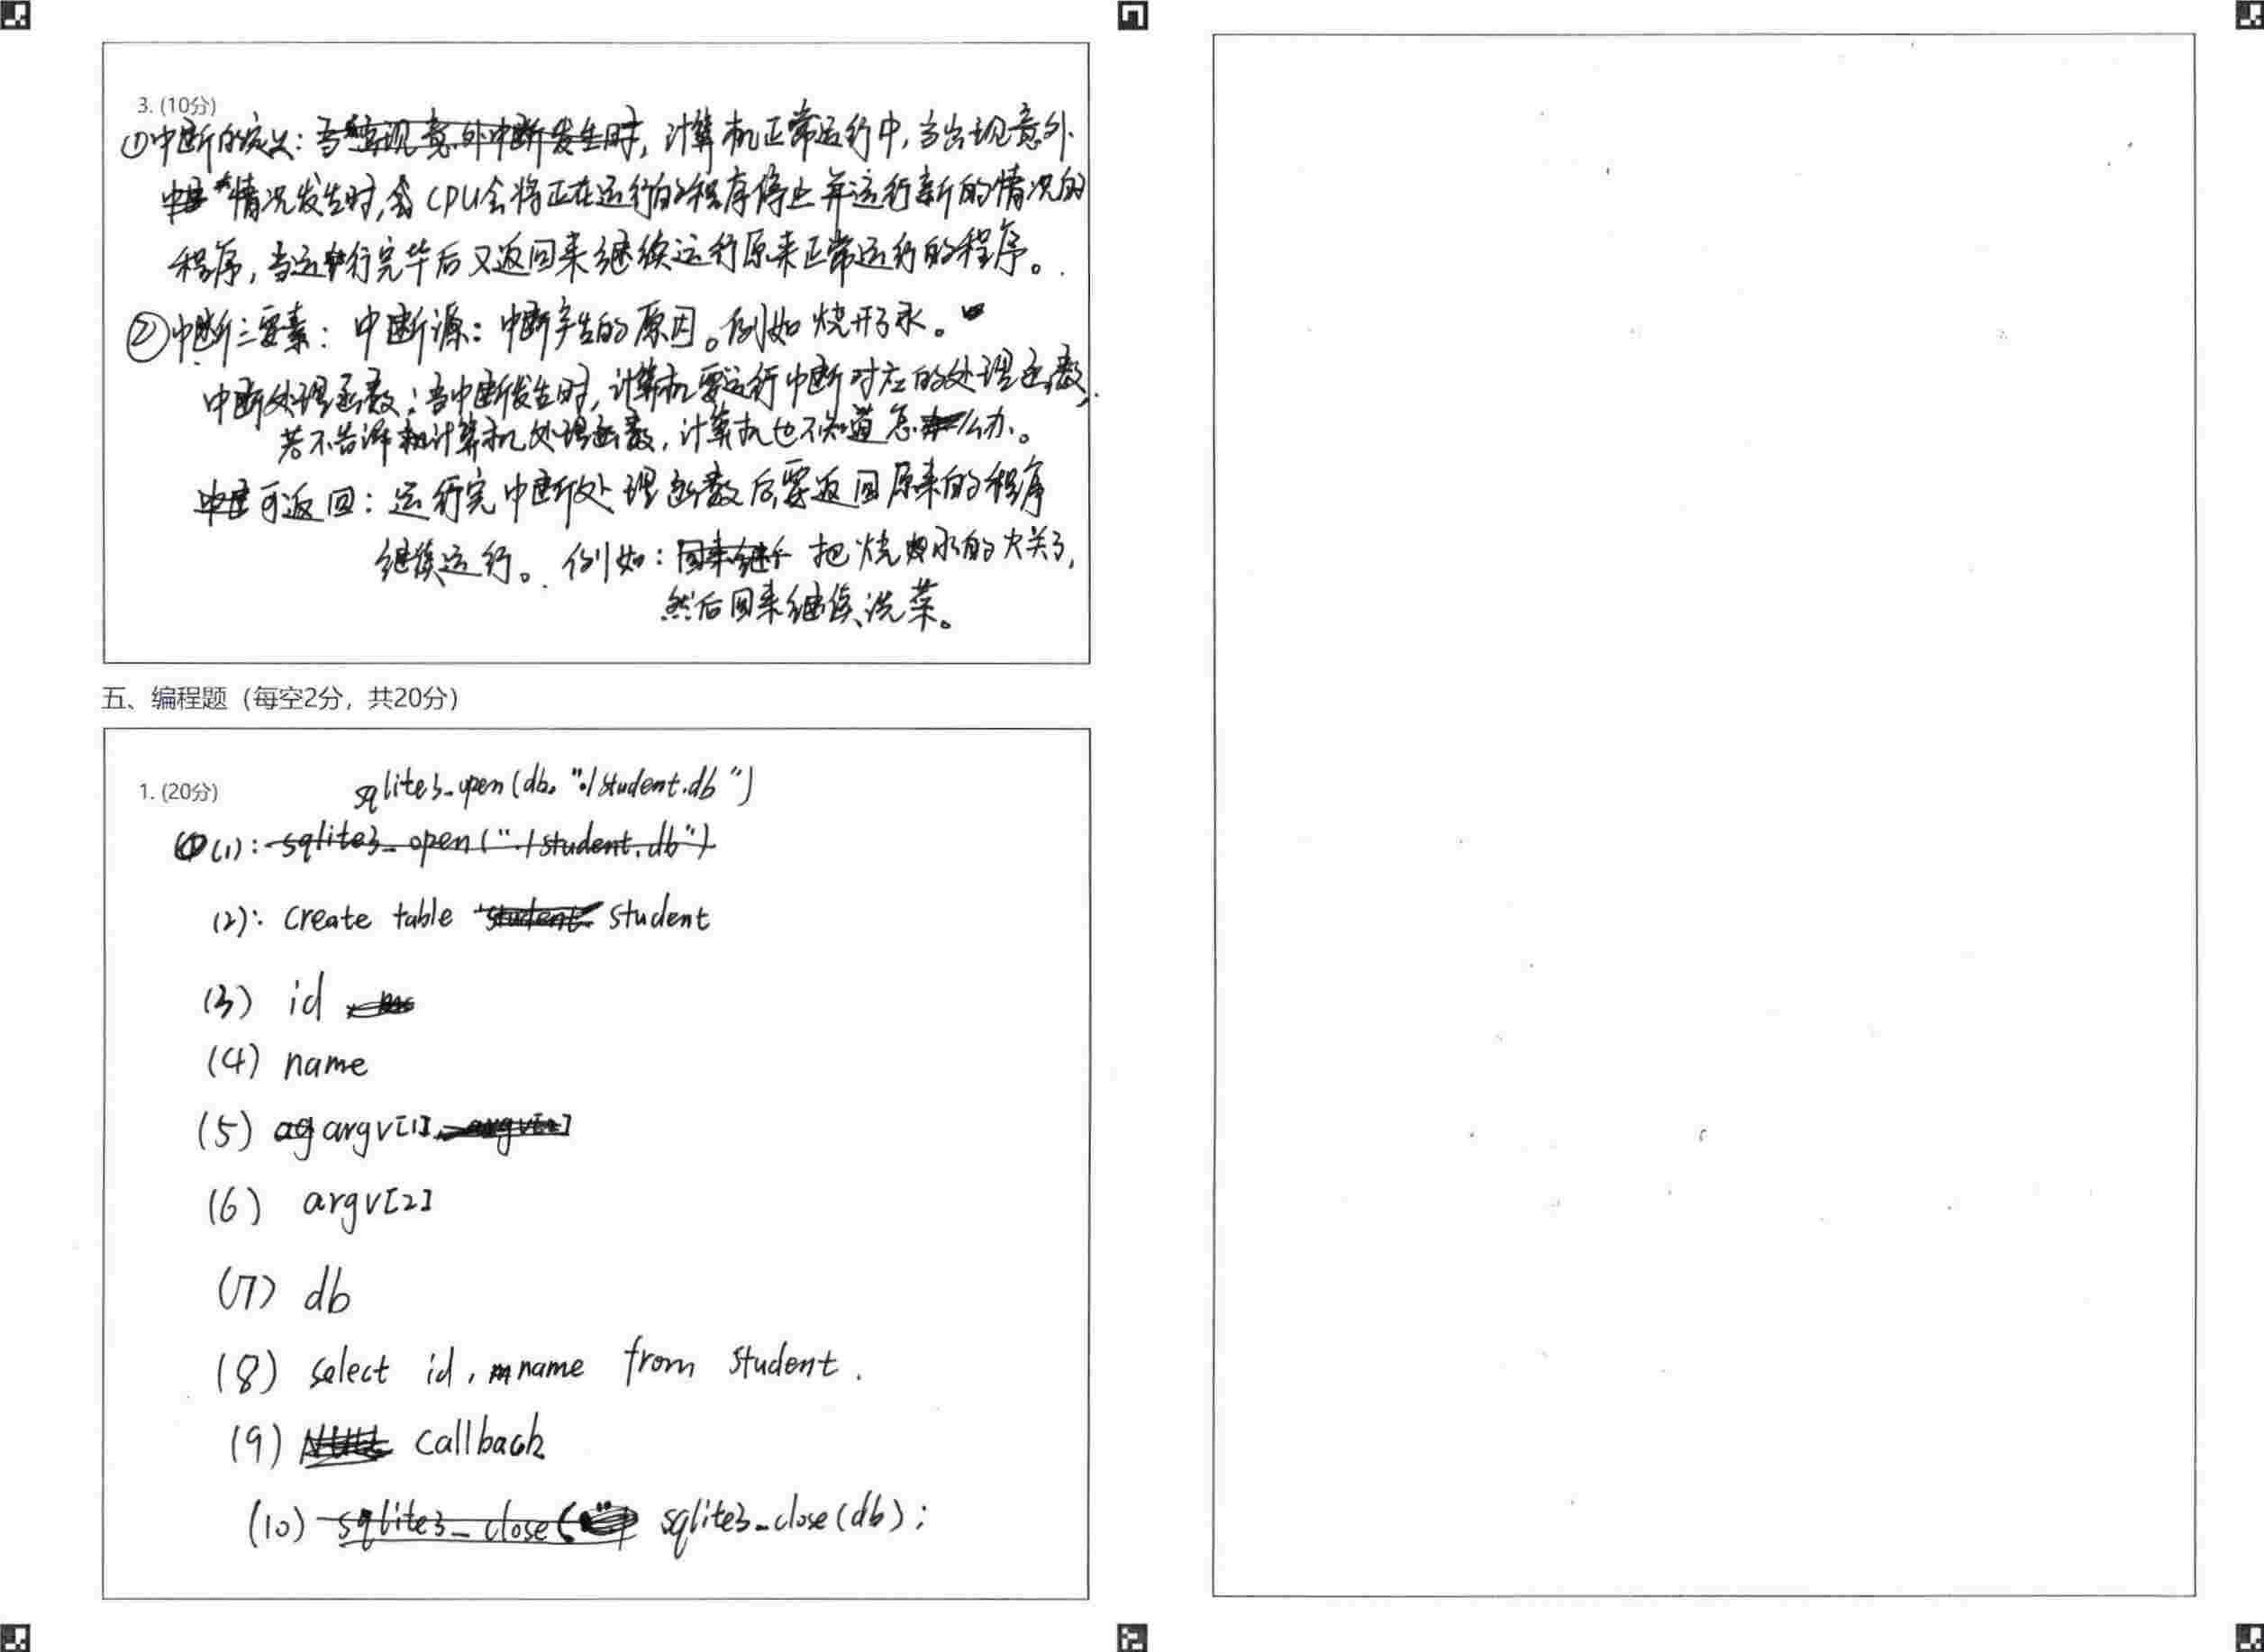 3. (10分)
①中断的定义：当出现意外中断发生时，计算机正常运行中，当出现意外
情况发生时，CPU会将正在运行的程序停止并运行新的情况的
程序，当运行完毕后又返回来继续运行原来正常运行的程序。
②中断三要素：中断源：中断产生的原因。例如烧开了水。
中断处理函数：当中断发生时，计算机要运行中断对应的处理函数，
若不告诉计算机处理函数，计算机也不知道怎么办。
可返回：运行完中断处理函数后要返回原来的程序
继续运行。例如：回来继 把烧水的火关了，
然后回来继续洗菜。
五、编程题（每空2分，共20分）
1. (20分)
sqlite3_open(db, "./student.db")
(1): sqlite3_open("./student.db")
(2): create table student student
(3) id
(4) name
(5) ag argv[1], argv[2]
(6) argv[2]
(7) db
(8) select id, name from student.
(9) callback
(10) sqlite3_close( sqlite3_close(db);